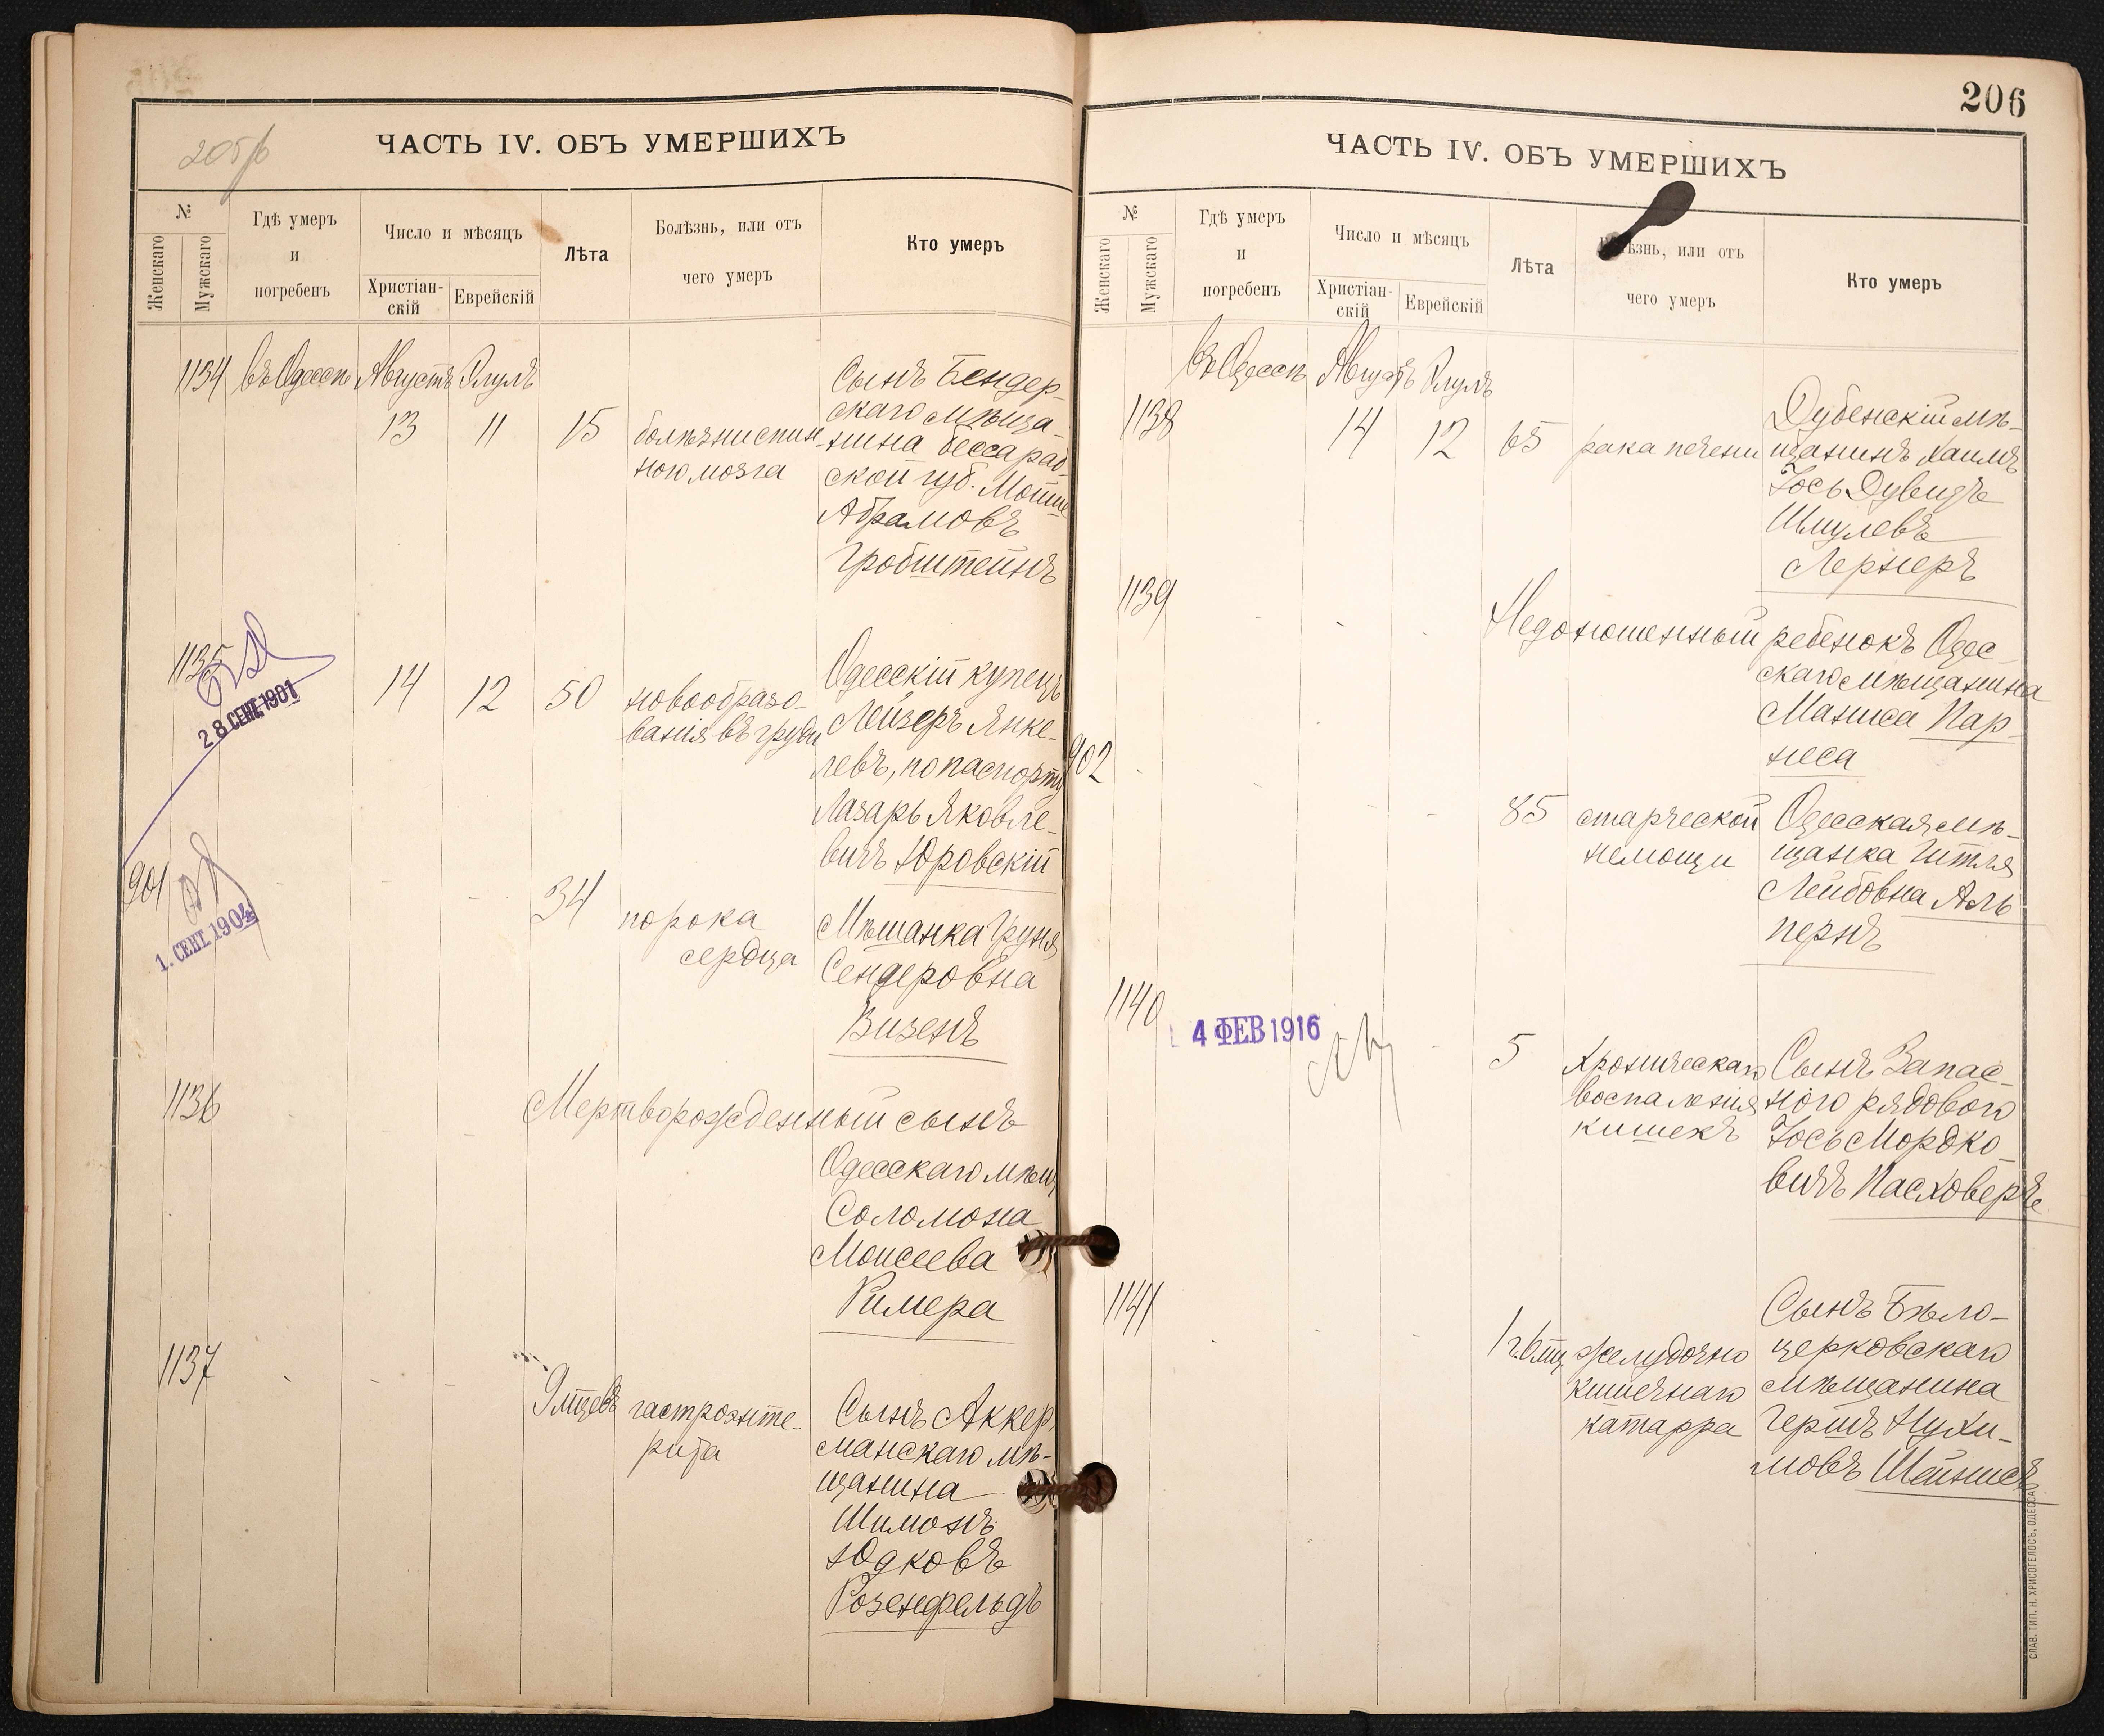 205/б
ЧАСТЬ IV. ОБЪ УМЕРШИХЪ
№
Женскаго
Мужскаго
Гдѣ умеръ
и
погребенъ
Число и мѣсяцъ
Христіан-
скій
Еврейскій
Лѣта
Болѣзнь, или отъ
чего умеръ
Кто умеръ
1134 въ Одессѣ Августъ Элулъ
13 11 15
болѣзни спин-
ного мозга
Сынъ Бендер-
скаго мѣща-
нина бессараб-
ской губ. Мошие
Абрамовъ
Гробштейнъ
1135
28 СЕНТ. 1901
14 12 50
новообразо-
ванія въ груди
Одесскій купецъ
Лейзеръ Янке-
левъ, по паспорту
Лазарь Яковле-
вичъ Юровскій
901
1. СЕНТ. 1904
34
порока
сердца
Мѣщанка Груня
Сендеровна
Визенъ
1136
Мертворожденный сынъ
Одесскаго мѣщ
Соломона
Моисеева
Римера
1137
9 мцевъ
гастроэнте-
рита
Сынъ Аккер
манскаго мѣ-
щанина
Шимонъ
Юдковъ
Розенфельдъ
206
ЧАСТЬ IV. ОБЪ УМЕРШИХЪ
№
Женскаго
Мужскаго
Гдѣ умеръ
и
погребенъ
Число и мѣсяцъ
Христіан-
скій
Еврейскій
Лѣта
ѣзнь, или отъ
чего умеръ
Кто умеръ
въ Одессѣ Августъ Элулъ
1138 14 12 65
рака печени
Дубенскій мѣ-
щанинъ Хаимъ
Іось Дувидъ
Шмулевъ
Лернеръ
1139
Недоношенный ребенокъ Одес-
скаго мѣщанина
Маниса Пар-
неса
902
85
старческой
немощи
Одесская мѣ-
щанка Гитля
Лейбовна Аль
пернъ
1140
4 ФЕВ 1916
5
Хроническаго
воспаленія
кишекъ
Сынъ Запас-
ного рядового
Іось Мордко-
вичъ Пасховеръ
1141
1 г. 6 мц.
желудочно
кишечнаго
катарра
Сынъ Бѣло-
церковскаго
мѣщанина
Гершъ Нухи-
мовъ
СЛАВ. ТИП. Н. ХРИСОГЕЛОСЪ, ОДЕССА